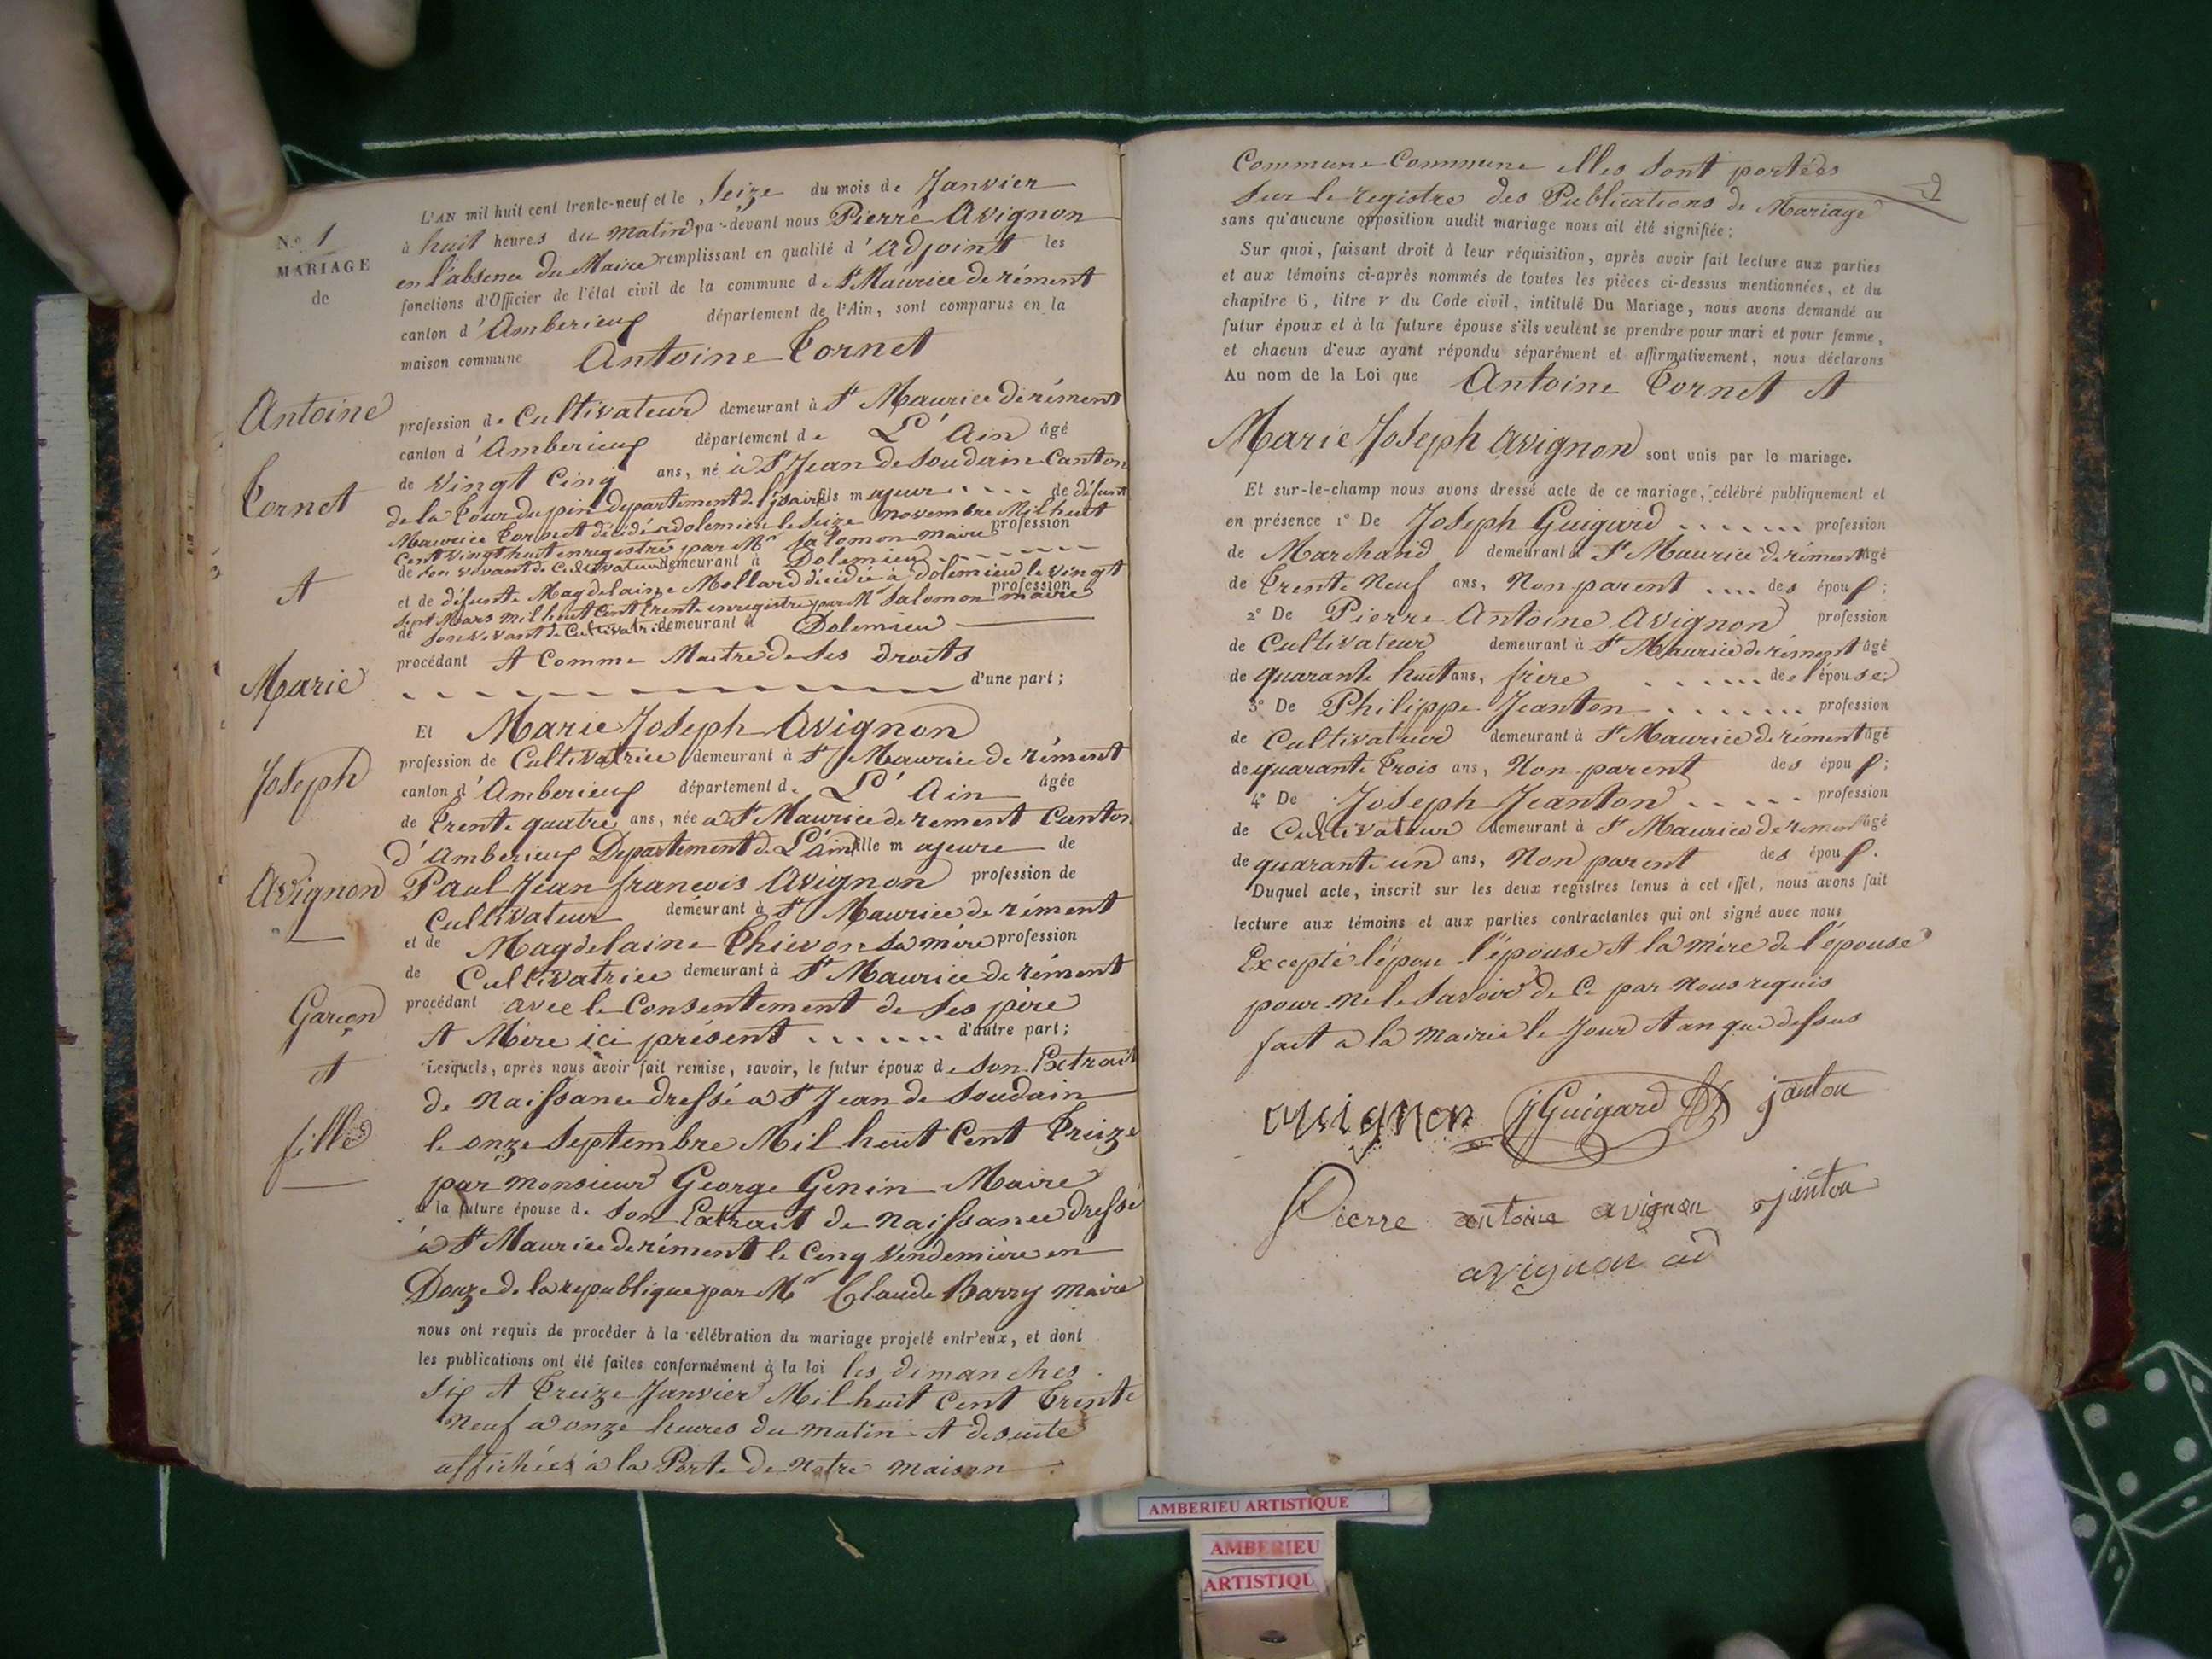 N.o 1
MARIAGE
de
Antoine
Tornet
et
Marie
Joseph
Avignon
Garçon
et
fille
L'AN mil huit cent trente-neuf et le Seize du mois de Janvier
à huit heures du matin par-devant nous Pierre Avignon
en l'absence du Maire remplissant en qualité d'Adjoint les
fonctions d'Officier de l'état civil de la commune de St Maurice de rément
canton d'Amberieux département de l'Ain, sont comparus en la
maison commune Antoine Tornet
profession de Cultivateur demeurant à St Maurice de rément
canton d'Amberieux département de L'Ain âgé
de Vingt Cinq ans, né à St Jean de Soudain Canton
de la Tour du pin departement de l'isaire fils majeur de défunt
Maurice Tornet décédé a dolemieu le Seize novembre Mil huit
Cent Vingt huit enregistré par Mr Salomon maire profession
de son vivant de Cultivateur demeurant à Dolemieu
et de défunte Magdelainne Mollard décédée à dolemieu le vingt
sept Mars mil huit Cent trente enregistré par Mr Salomon maire profession
de son vivant de Cultivatrice demeurant à Dolemieu
procédant et Comme Maitre de Ses Droits
d'une part;
Et Marie Joseph Avignon
profession de Cultivatrice demeurant à St Maurice de rément
canton d'Amberieux département de L'Ain âgée
de trente quatre ans, née a St Maurice de rement Canton
d'Amberieux Departement de L'ain fille majeure de
Paul Jean francois Avignon profession de
Cultivateur demeurant à St Maurice de rément
et de Magdelaine Thievon Sa mère profession
de Cultivatrice demeurant à St Maurice de rément
procédant avec le Consentement de Ses père
et Mère ici présent d'autre part;
Lesquels, après nous avoir fait remise, savoir, le futur époux de Son Extrait
de Naissance dressé a St Jean de Soudain
le onze Septembre Mil huit Cent Treize
par monsieur George Genin Maire
et la future épouse de Son Extrait de naissance dressé
à St Maurice de rément le Cinq Vendemière en
Douze de la republique par Mr Claude Barry maire
nous ont requis de procéder à la célébration du mariage projeté entr'eux, et dont
les publications ont été faites conformément à la loi les dimanches
Six et Treize Janvier Mil huit Cent Trente
Neuf a onze heures du matin et desuite
affichées à la Porte de Notre maison
Commune Commune elles Sont portées
Sur le registre des Publications de Mariage
sans qu'aucune opposition audit mariage nous ait été signifiée;
Sur quoi, faisant droit à leur réquisition, après avoir fait lecture aux parties
et aux témoins ci-après nommés de toutes les pièces ci-dessus mentionnées, et du
chapitre 6, titre v du Code civil, intitulé Du Mariage, nous avons demandé au
futur époux et à la future épouse s'ils veulent se prendre pour mari et pour femme,
et chacun d'eux ayant répondu séparément et affirmativement, nous déclarons
Au nom de la Loi que Antoine Tornet et
Marie Joseph Avignon sont unis par le mariage.
Et sur-le-champ nous avons dressé acte de ce mariage, célébré publiquement et
en présence 1º De Joseph Guigard profession
de Marchand demeurant à St Maurice de rément âgé
de Trente Neuf ans, Non parent des époux;
2º De Pierre Antoine Avignon profession
de Cultivateur demeurant à St Maurice de rément âgé
de quarante huit ans, frère de l'épouse;
3º De Philippe Jeanton profession
de Cultivateur demeurant à St Maurice de rément âgé
de quarante Trois ans, Non parent des époux;
4º De Joseph Jeanton profession
de Cultivateur demeurant à St Maurice de rement âgé
de quarante un ans, Non parent des époux.
Duquel acte, inscrit sur les deux registres tenus à cet effet, nous avons fait
lecture aux témoins et aux parties contractantes qui ont signé avec nous
Excepté l'épou l'épouse et la mère de l'épouse
pour ne le Savoir de Ce par Nous requis
fait a la Mairie le Jour et an que dessus
avignon J Guigard janton
Pierre antoine avignon janton
avignon ad
AMBERIEU ARTISTIQUE
AMBERIEU
ARTISTIQU